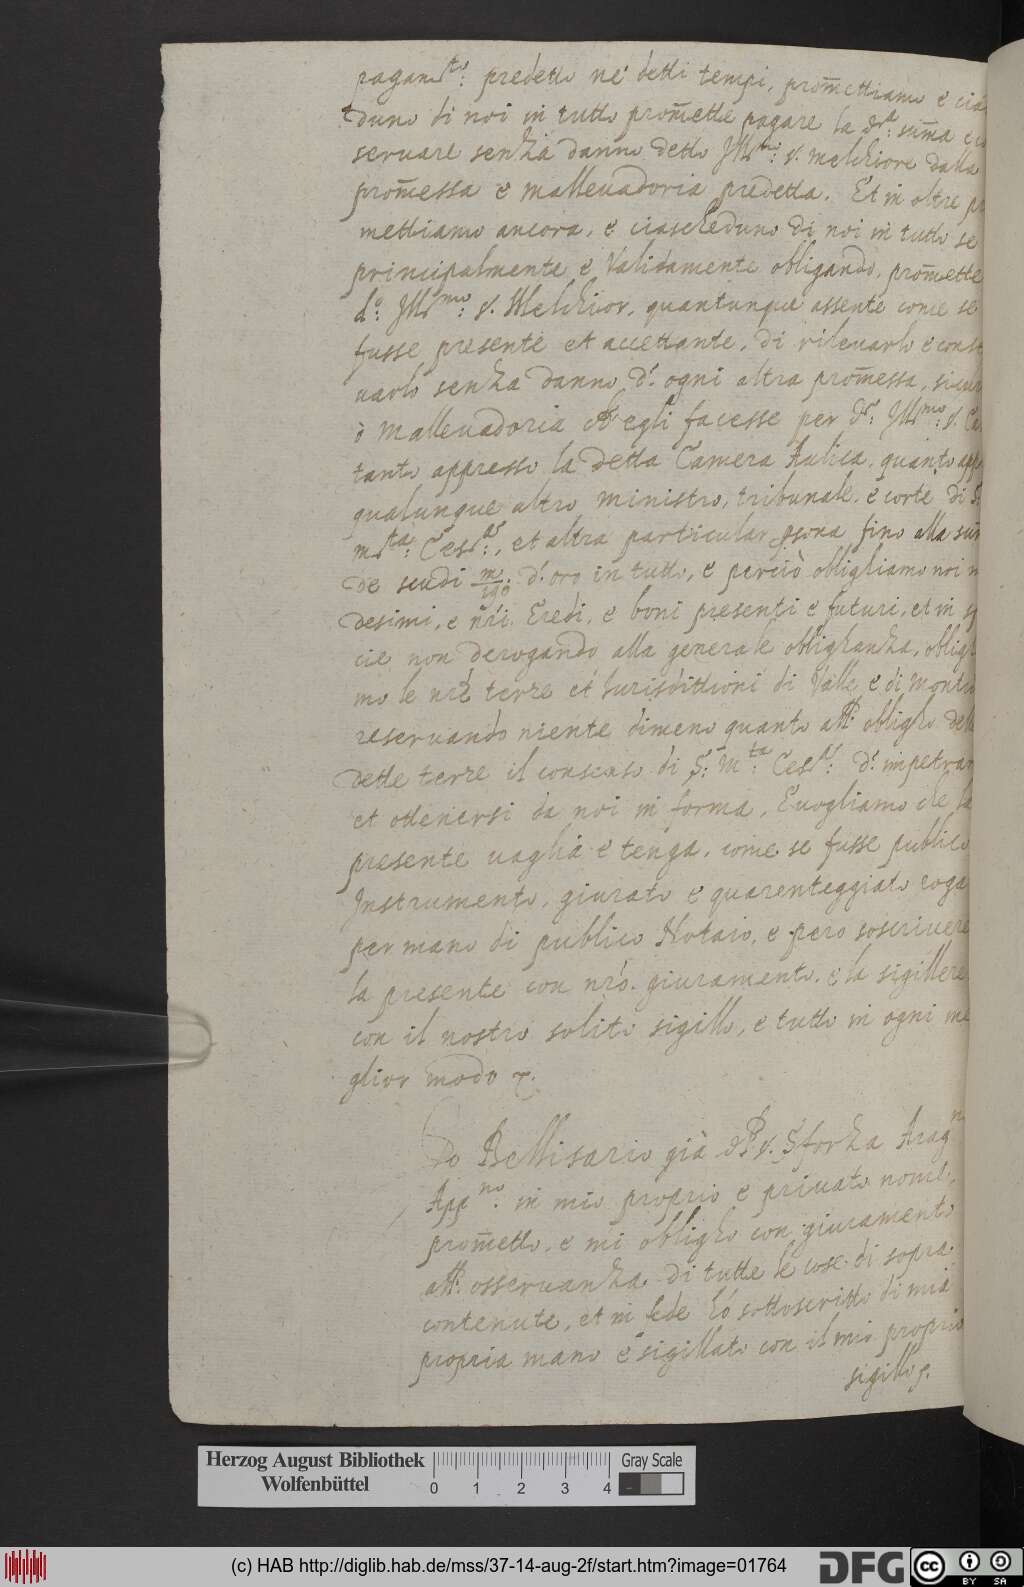 pagam.to: predetto ne' detti tempi, prom̄ettiamo e cia
duno di noi in tutto prom̄ette pagare la d.a: sum̄a e co
servare senza danno detto Ill.mo: s. melchiore dalla
prom̄essa e mallevadoria predetta. Et in oltre pr
mettiamo ancora, e ciascheduno di noi in tutto se
principalmente e validamente obligando, prom̄ette
d.o: Ill.mo: s. Melchior, quantunque assente come se
fusse presente et accettante, di rilevarlo e conse
varlo senza danno d'. ogni altra prom̄essa, sicur
ò mallevadoria ch' egli facesse per d.o: Ill.mo: s. Ca
tanto appresso la detta Camera Aulica, quanto app
qualunque altro ministro, tribunale, e corte di S:
m.ta: Ces.a:, et altra particular psona fino alla sum
de scudi m/190: d'. oro in tutto, e perciò oblighiamo noi m
desimi, e nr̄i. Eredi, e boni presenti e futuri, et in sp
cie non derogando alla generale oblighanza, obligh
mo le nr̄e terre et Iurisdittioni di Valle e di Montio
reservando niente dimeno quanto all': obligho dell
dette terre il consenso di S: M.ta: Ces.a: d'. impetrar
et ottenersi da noi in forma. E vogliamo che la
presente vaglia e tenga, come se fusse publico
Instrumento, giurato e quarenteggiato roga
per mano di publico Notaio, e pero soscrivere
la presente con nr̄o. giuramento, e la sigillere
con il nostro solito sigillo, e tutto in ogni me
glior modo &.
Io Bellisario già d.l s. Sforza Arag.no
App.no: in mio proprio e privato nome,
prom̄etto, e mi obligho con giuramento
all': osservanza di tutte le cose di sopra
contenute, et in fede hó sottoscritto di mia
propria mano e sigillato con il mio proprio
sigillo
Herzog August Bibliothek
Wolfenbüttel
0 1 2 3 4
Gray Scale
(c) HAB http://diglib.hab.de/mss/37-14-aug-2f/start.htm?image=01764
DFG
cc BY SA